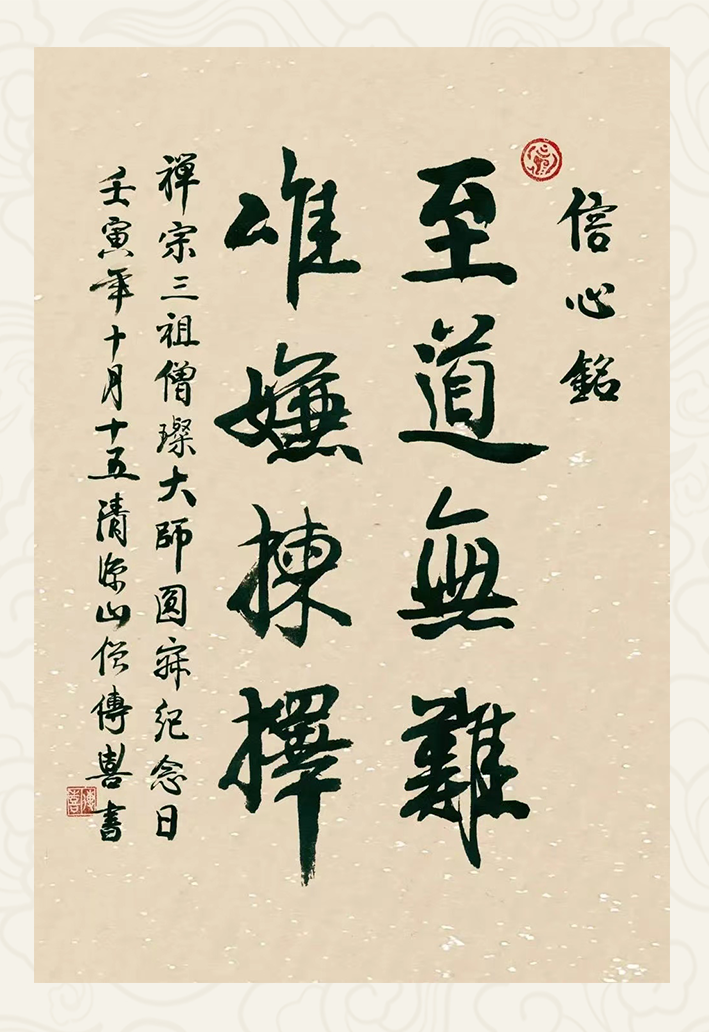 信心銘
至道無難
唯嫌揀擇
禅宗三祖僧璨大師圆寂纪念日
壬寅年十月十五清凉山僧傳喜書
傳喜